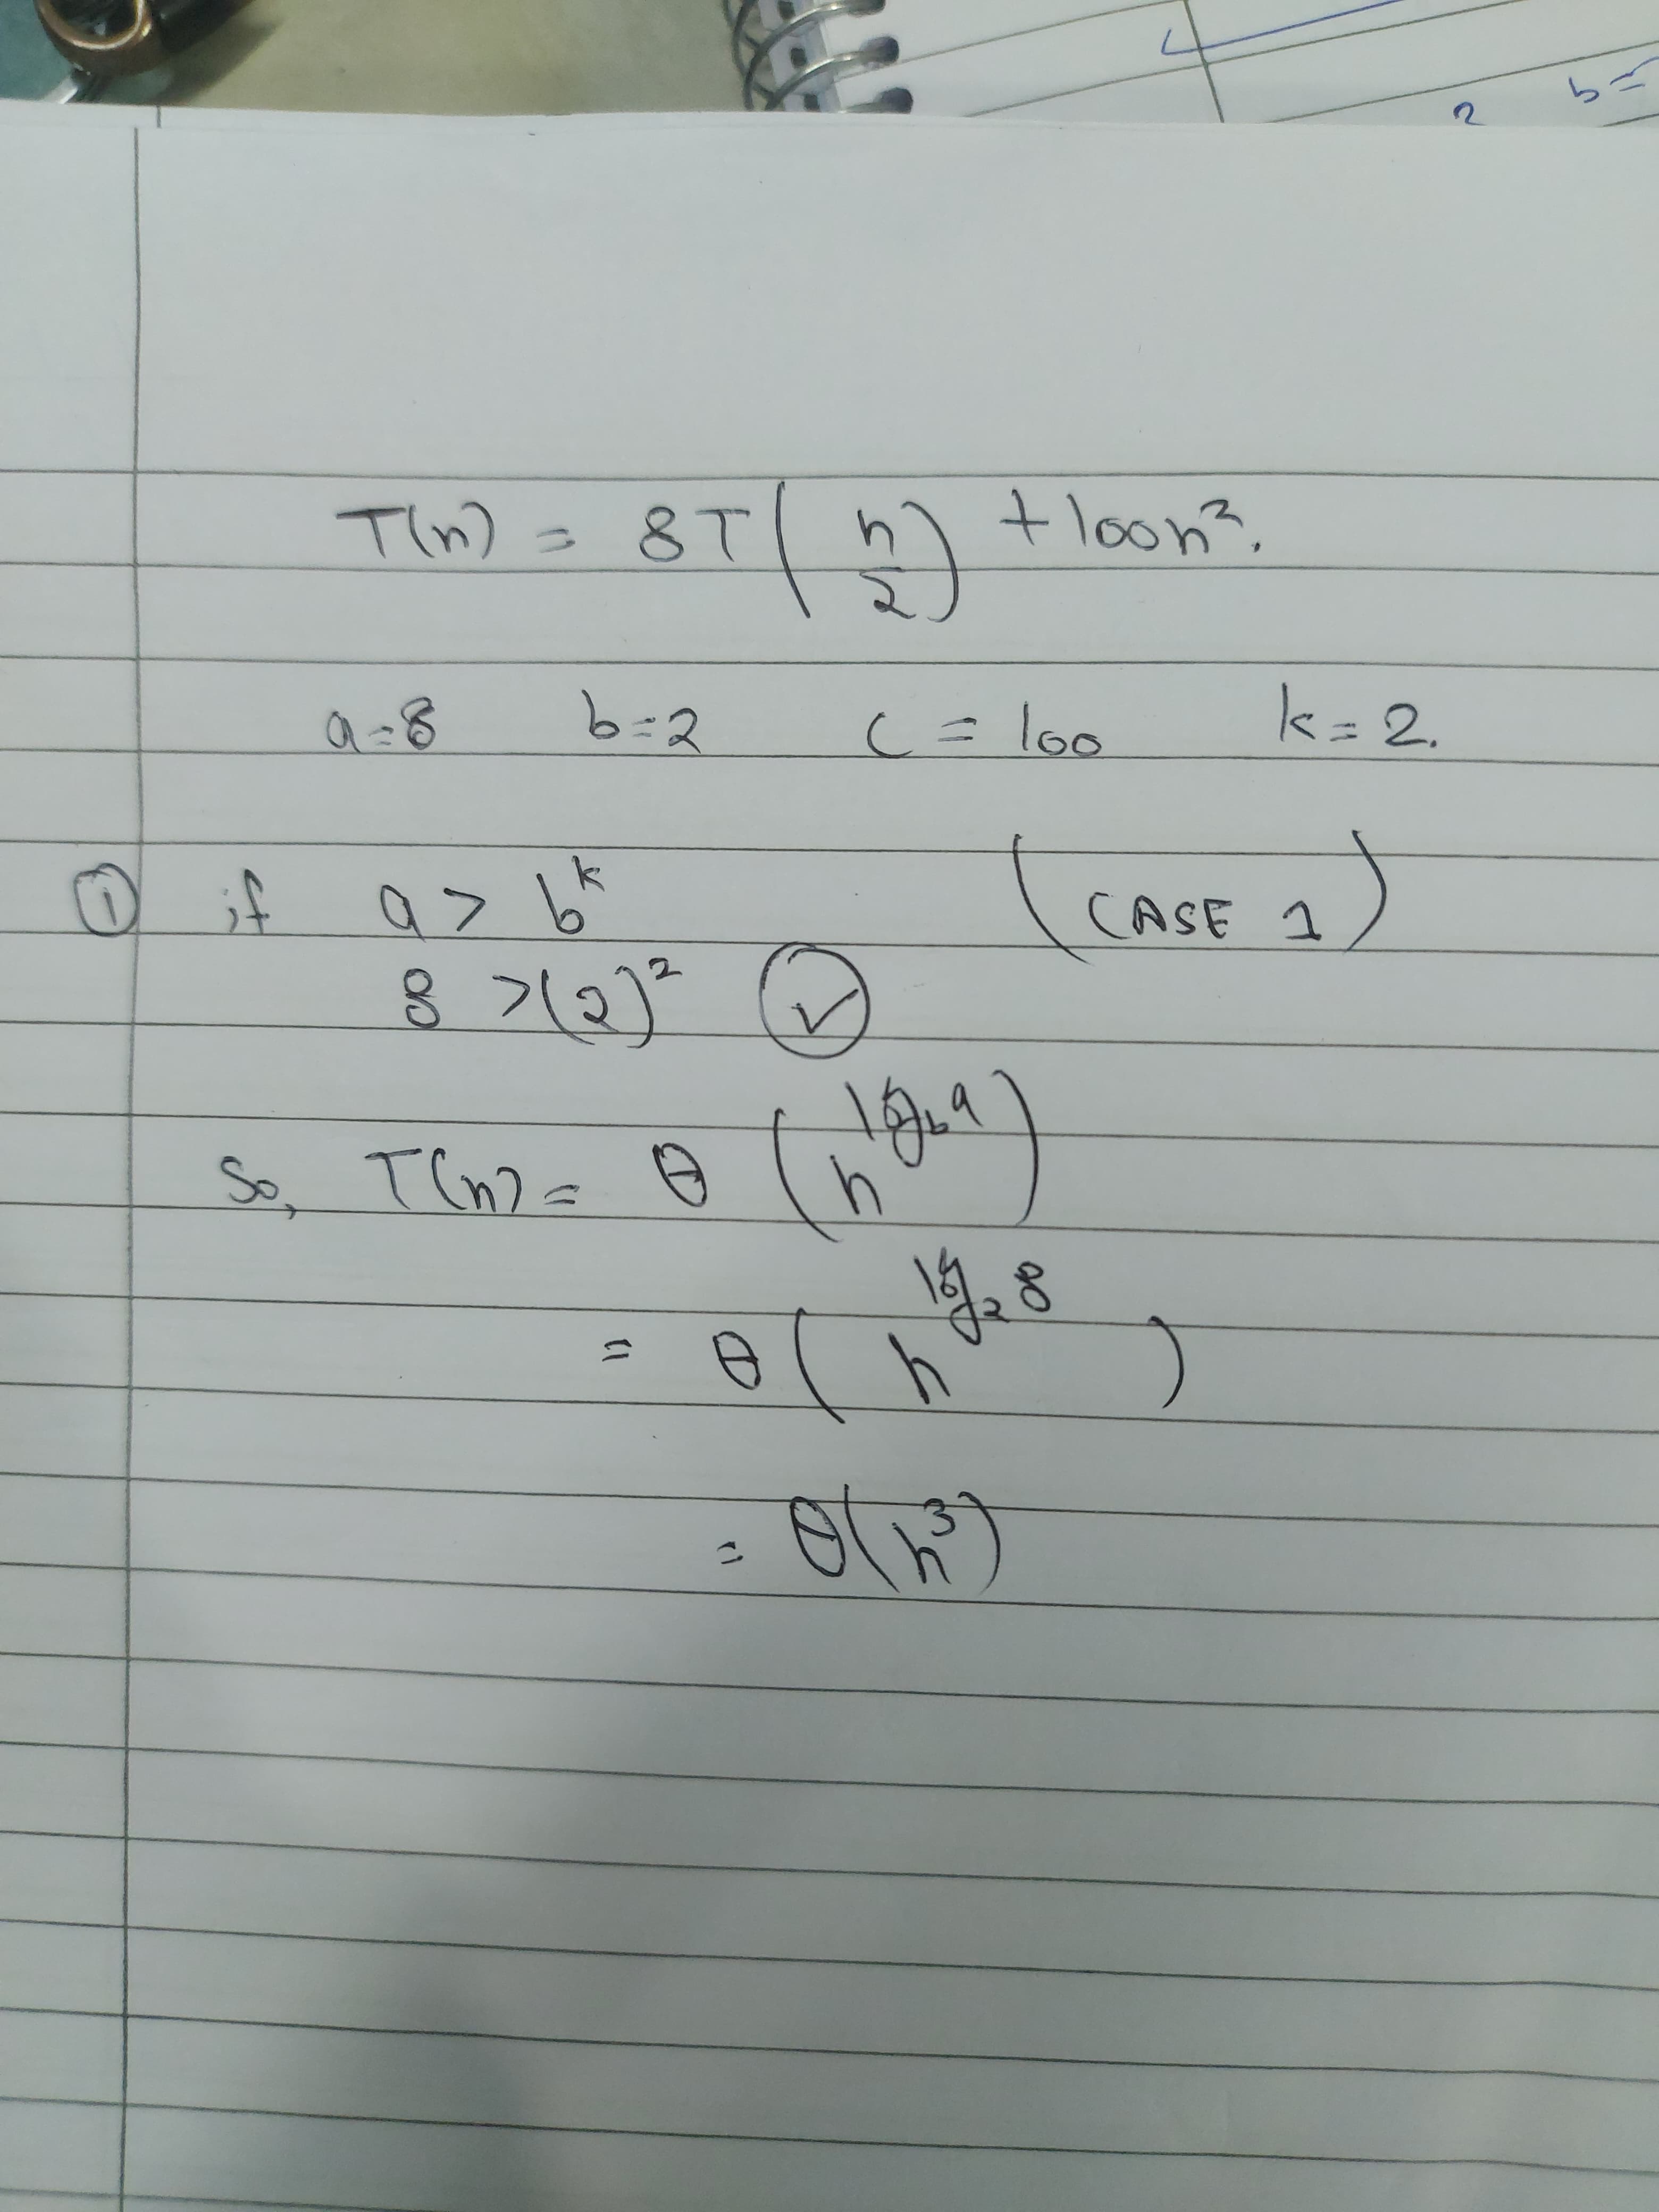 b=
2
T(n) = 8T(n/2) + 100n².
a=8 b=2 c = 100 k=2.
① if a > b^k (CASE 1)
8 >(2)² ✓
So, T(n) = θ (n^log_b a)
= θ(n^log_2 8)
= θ(n³)